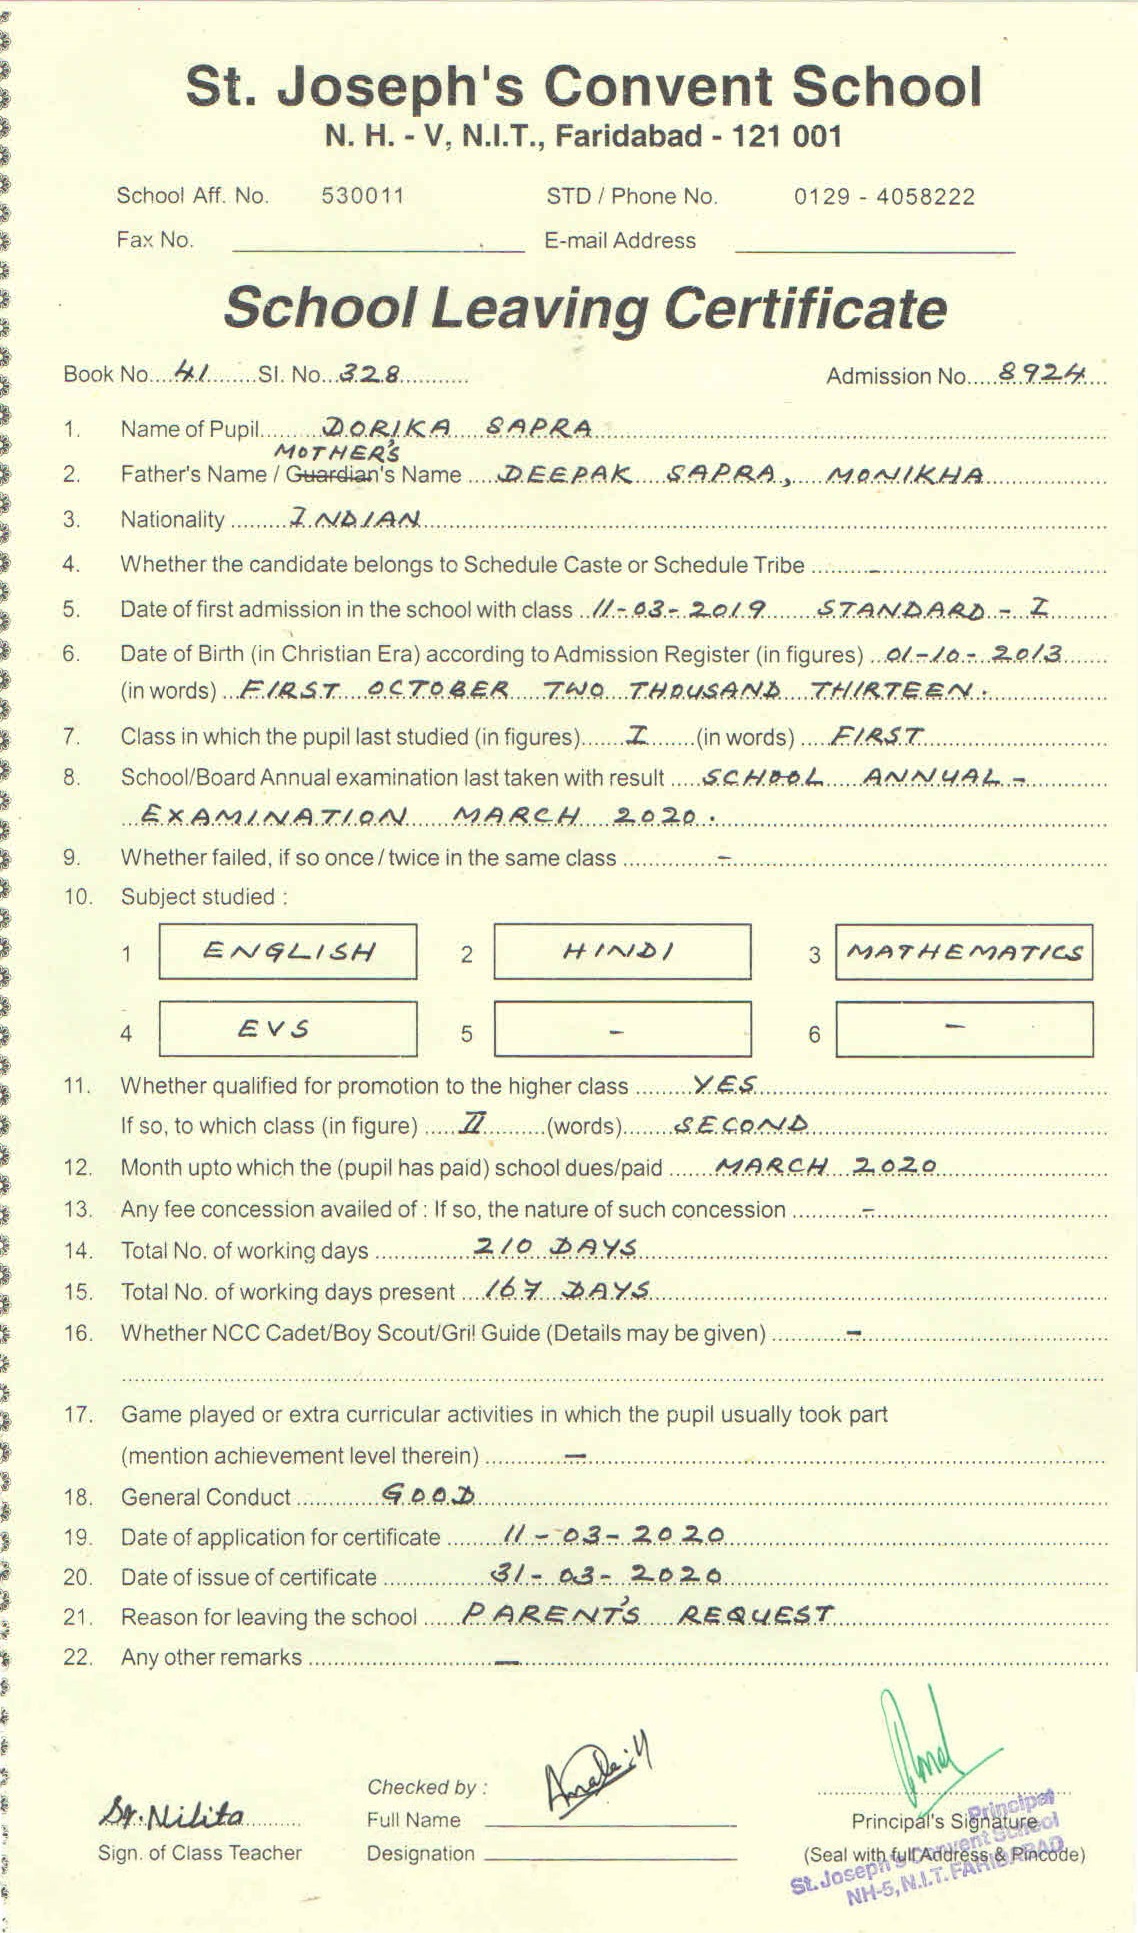 St. Joseph's Convent School
N. H. - V, N.I.T., Faridabad - 121 001
School Aff. No. 530011 STD / Phone No. 0129 - 4058222
Fax No. E-mail Address
School Leaving Certificate
Book No. 41 Sl. No. 328 Admission No. 8924
1. Name of Pupil DORIKA SAPRA
MOTHER'S
2. Father's Name / Guardian's Name DEEPAK SAPRA, MONIKHA
3. Nationality INDIAN
4. Whether the candidate belongs to Schedule Caste or Schedule Tribe -
5. Date of first admission in the school with class 11-03-2019 STANDARD - I
6. Date of Birth (in Christian Era) according to Admission Register (in figures) 01-10-2013
(in words) FIRST OCTOBER TWO THOUSAND THIRTEEN.
7. Class in which the pupil last studied (in figures) I (in words) FIRST
8. School/Board Annual examination last taken with result SCHOOL ANNUAL -
EXAMINATION MARCH 2020.
9. Whether failed, if so once / twice in the same class -
10. Subject studied :
1 ENGLISH 2 HINDI 3 MATHEMATICS
4 EVS 5 - 6 -
11. Whether qualified for promotion to the higher class YES
If so, to which class (in figure) II (words) SECOND
12. Month upto which the (pupil has paid) school dues/paid MARCH 2020
13. Any fee concession availed of : If so, the nature of such concession -
14. Total No. of working days 210 DAYS
15. Total No. of working days present 167 DAYS
16. Whether NCC Cadet/Boy Scout/Gril Guide (Details may be given) -
17. Game played or extra curricular activities in which the pupil usually took part
(mention achievement level therein) -
18. General Conduct GOOD
19. Date of application for certificate 11-03-2020
20. Date of issue of certificate 31-03-2020
21. Reason for leaving the school PARENT'S REQUEST
22. Any other remarks -
Checked by :
Sr. Nilita Full Name Principal's Signature
Sign. of Class Teacher Designation (Seal with full Address & Pincode)
Principal
St. Joseph's Convent School
NH-5, N.I.T. FARIDABAD